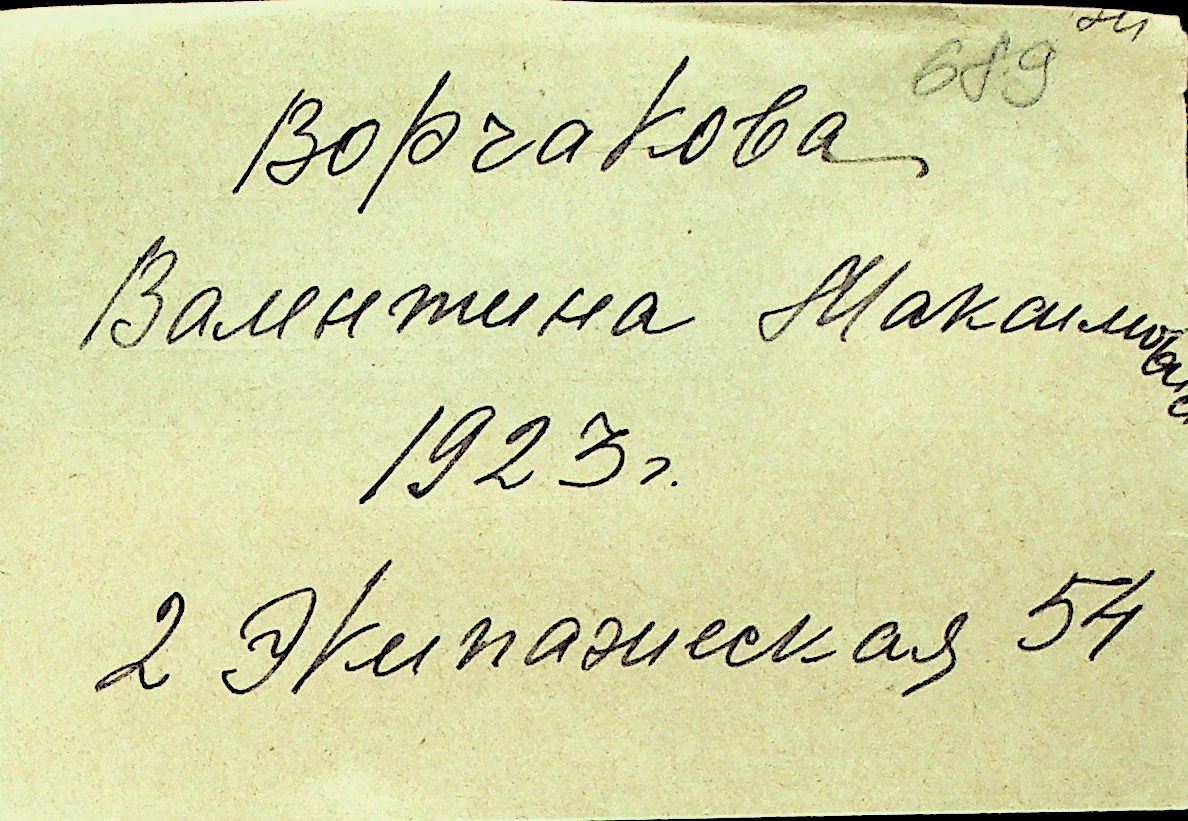 689
Ворчакова
Валентина Максимовна
1923г.
2 Экипажеская 54